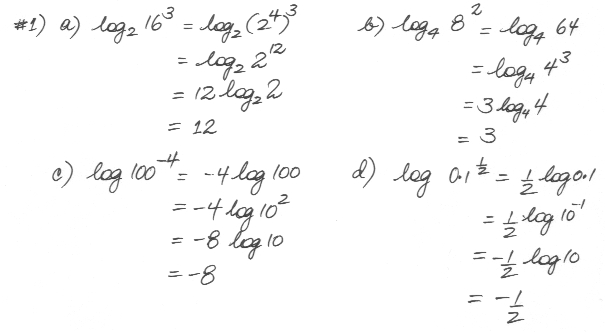 #1) a) log₂ 16³ = log₂ (2⁴)³
= log₂ 2¹²
= 12 log₂ 2
= 12
b) log₄ 8² = log₄ 64
= log₄ 4³
= 3 log₄ 4
= 3
c) log 100⁻⁴ = -4 log 100
= -4 log 10²
= -8 log 10
= -8
d) log 0.1^½ = ½ log 0.1
= ½ log 10⁻¹
= -½ log 10
= -½